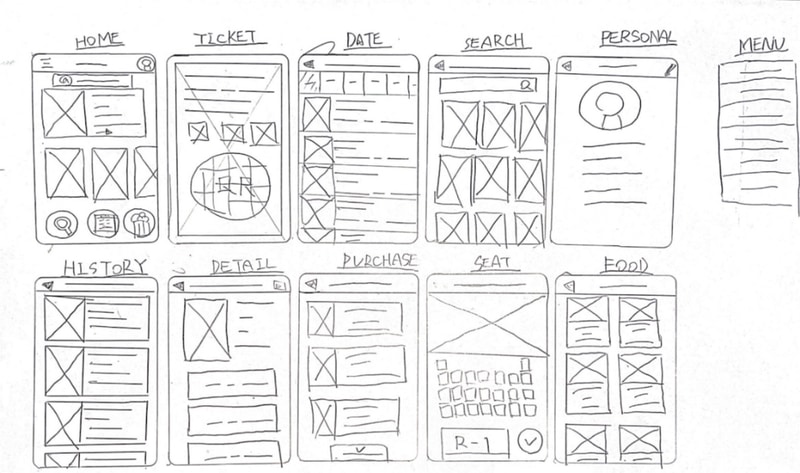 HOME
TICKET
DATE
SEARCH
PERSONAL
MENU
QR
HISTORY
DETAIL
PURCHASE
SEAT
FOOD
R-1